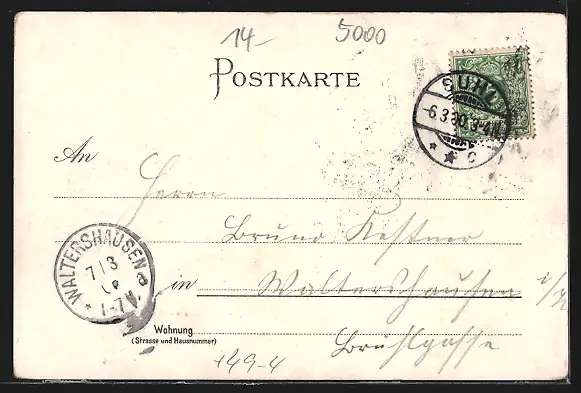 14- 5000
POSTKARTE
SUHL
6.3.00.3-4N.
* * c
An
Herrn
Bruno Kestner
WALTERSHAUSEN
7/3
1-7V.
in Waltershausen i/Th
Wohnung
(Strasse und Hausnummer)
Brühlgasse
+49-4